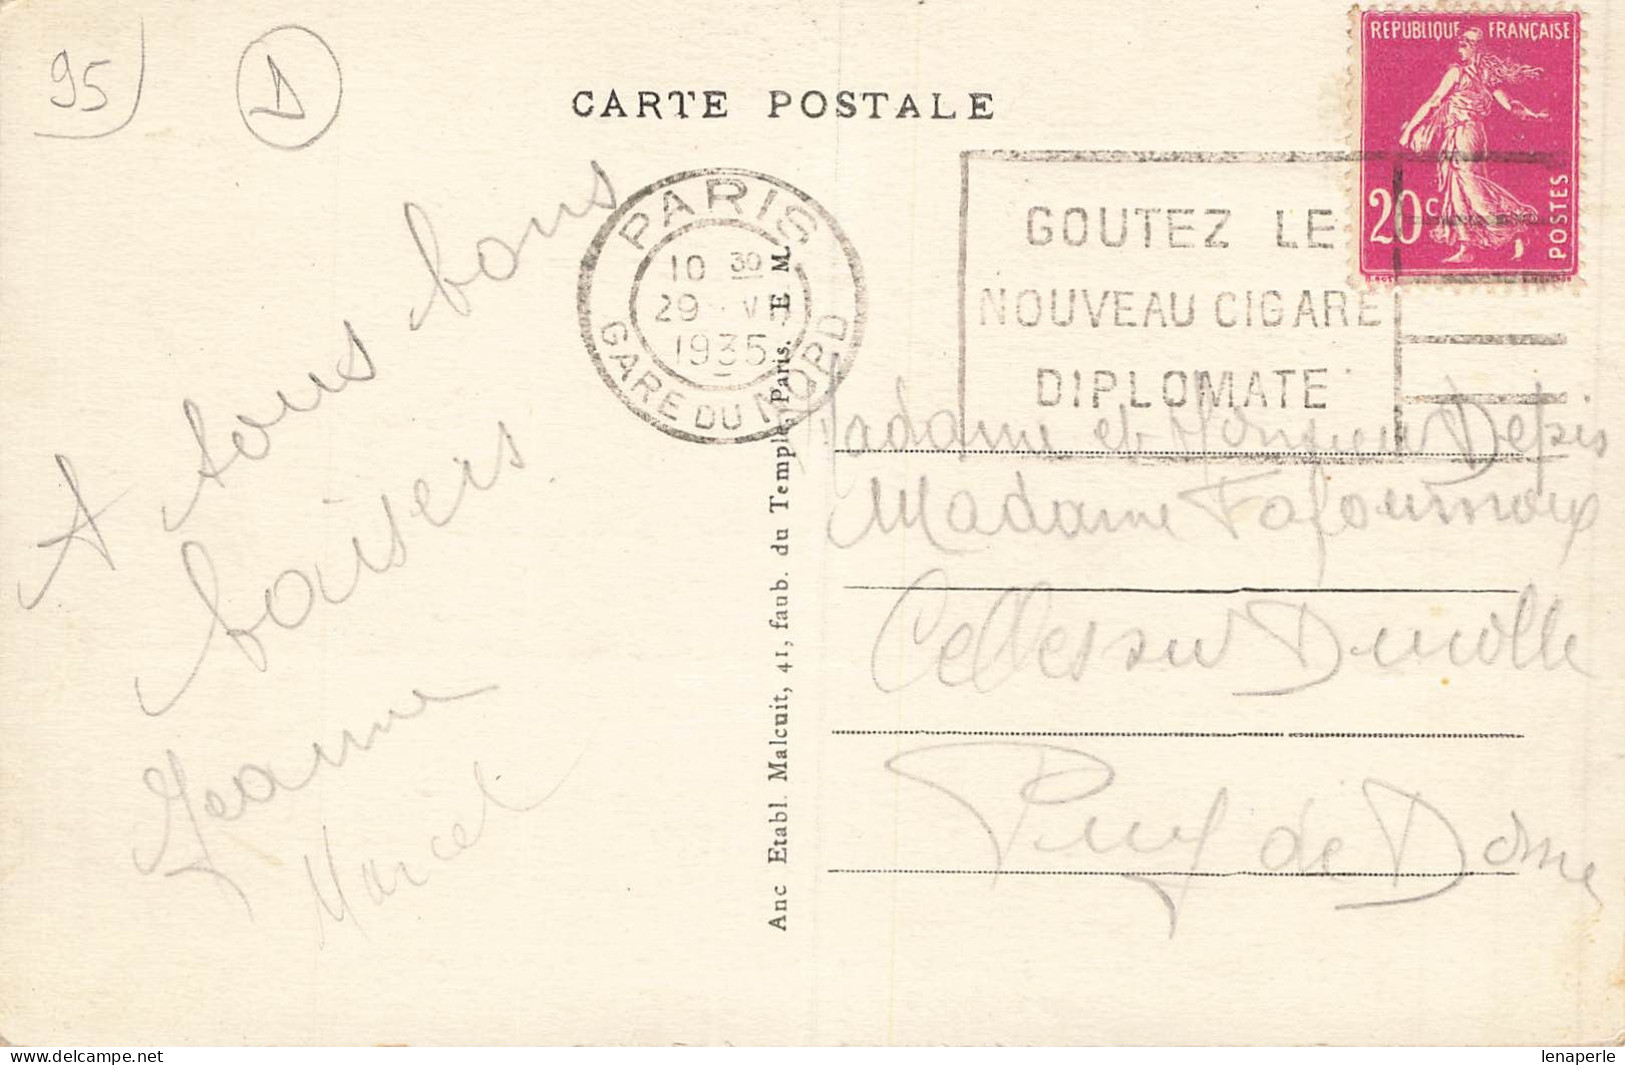 95
D
CARTE POSTALE
REPUBLIQUE FRANÇAISE
20c
POSTES
PARIS
10 30
29 VII
1935
GARE DU NORD
GOUTEZ LE
NOUVEAU CIGARE
DIPLOMATE
A tous bons
baisers
Jeanne
Marcel
Anc Etabl. Malcuit, 41, faub. du Temple, Paris. - E M.
Madame et Monsieur Depis
Madame Fafournoux
Celles sur Durolle
Puy de Dome
www.delcampe.net
lenaperle